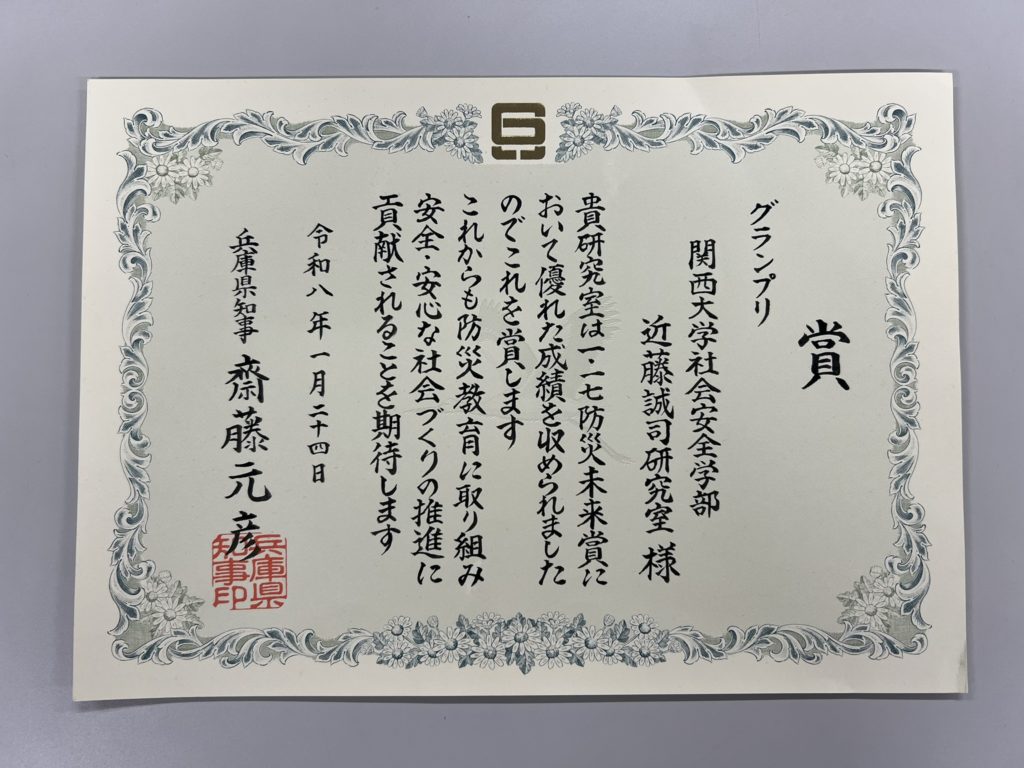 賞
グランプリ
関西大学社会安全学部
近藤誠司研究室 様
貴研究室は一・一七防災未来賞に
おいて優れた成績を収められました
のでこれを賞します
これからも防災教育に取り組み
安全・安心な社会づくりの推進に
貢献されることを期待します
令和八年一月二十四日
兵庫県知事 齋藤元彦
兵庫県
知事印